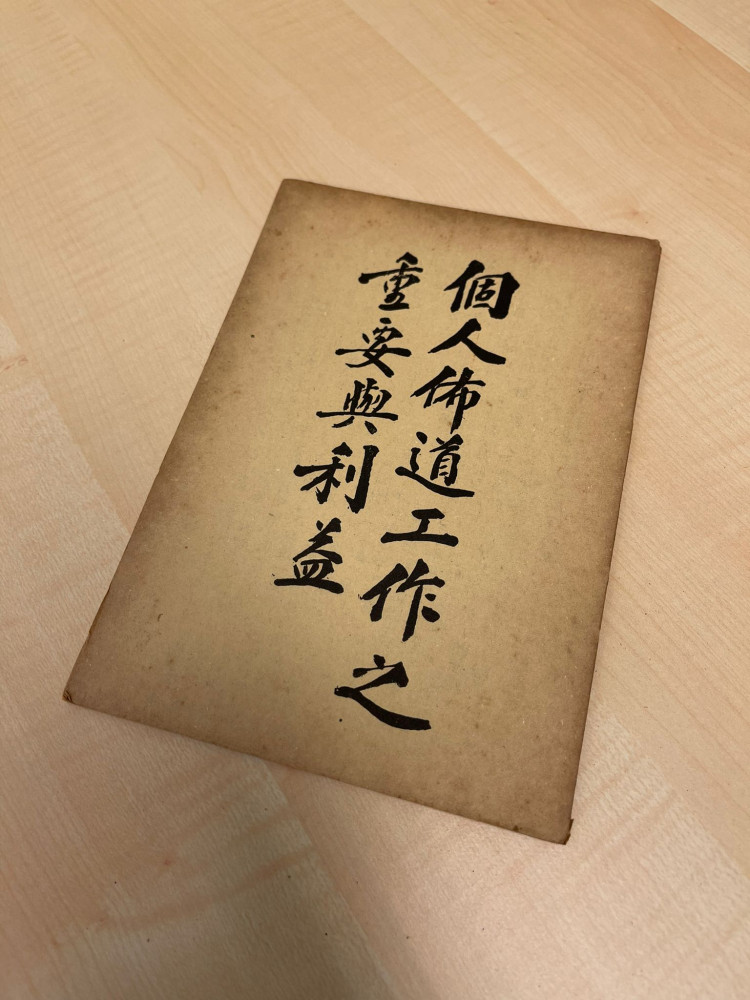 個人佈道工作之
重要與利益